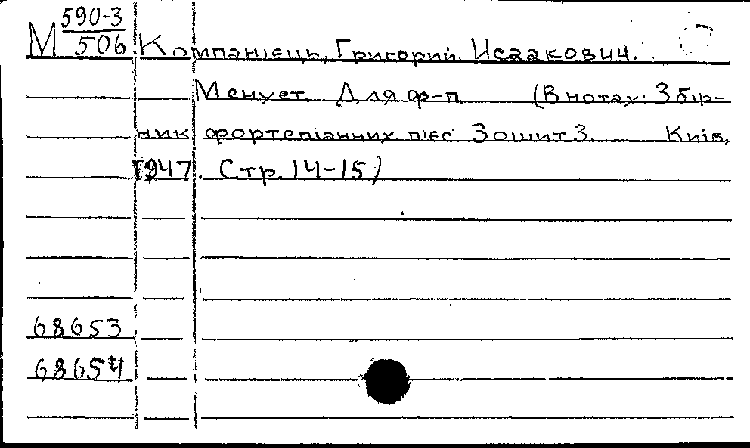 М 590-3
506 Компанієць, Григорий Исаакович.
Менует. Для ф-п (В нотах: Збір-
ник фортепіанних п'єс Зошит 3. Київ,
1947. Стр. 14-15)
68653
68654